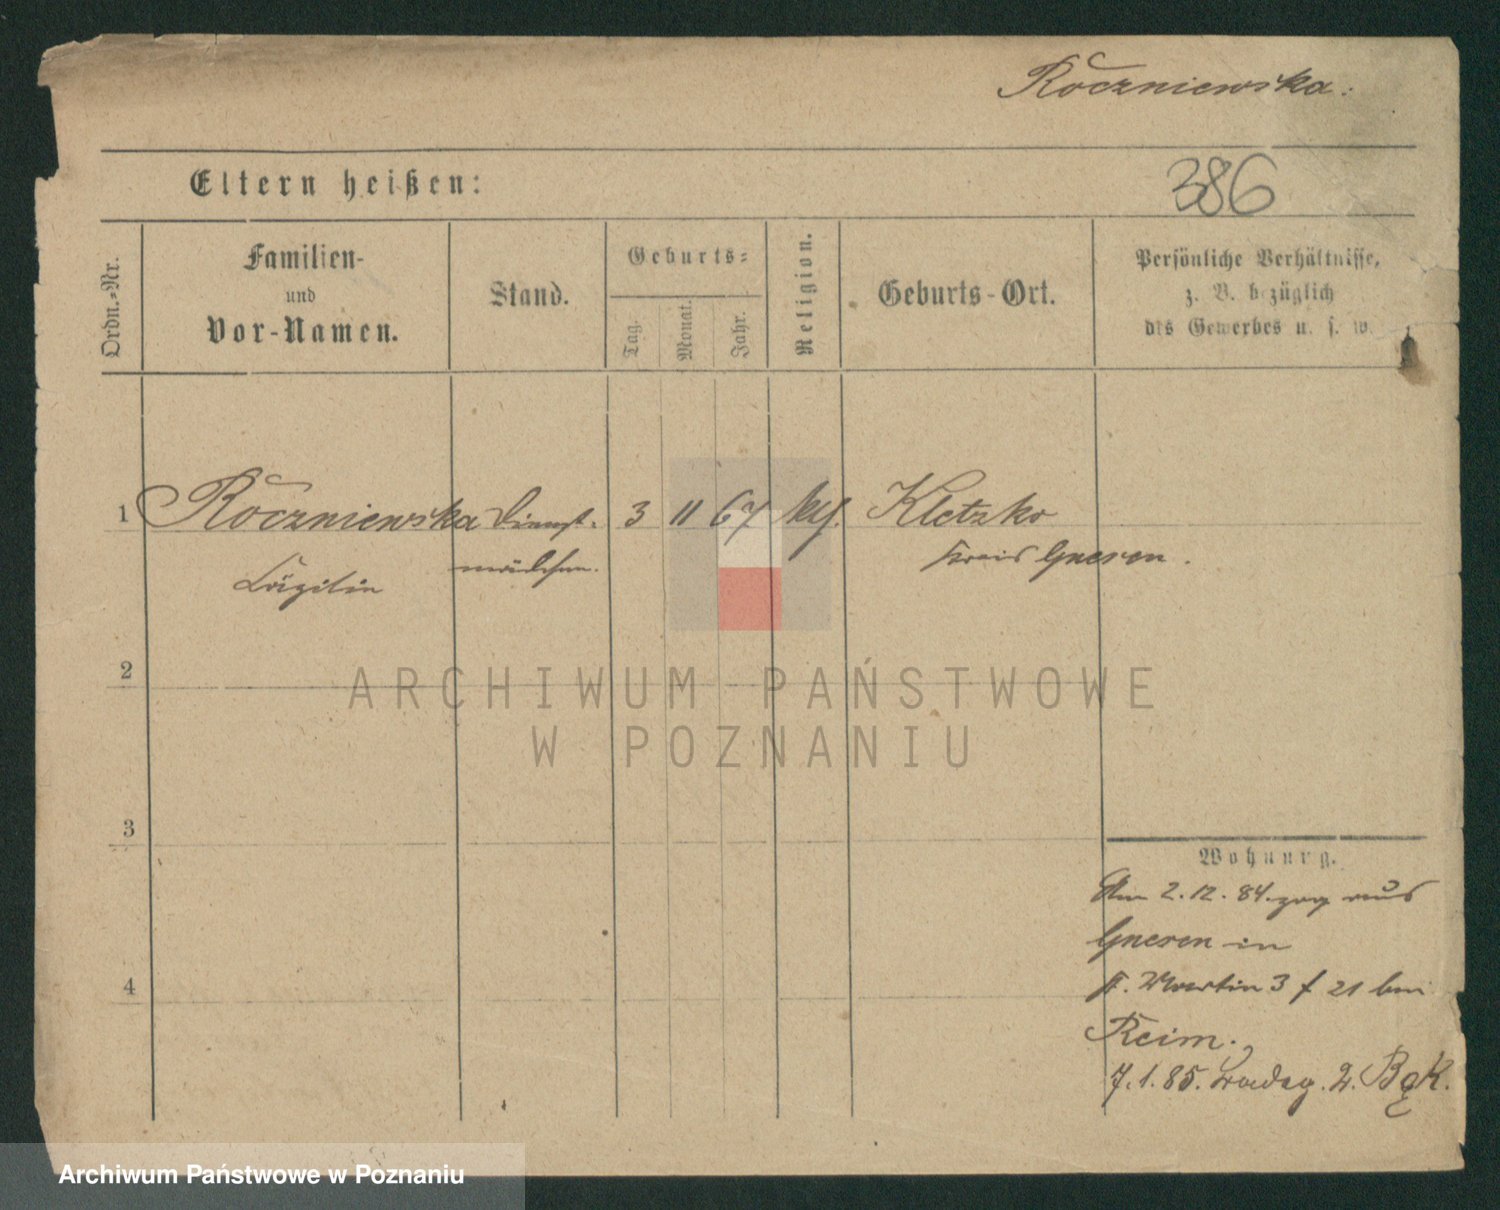 Roczniewska.
Eltern heißen:
386
Ordn.-Nr.
Familien-
und
Vor-Namen.
Stand.
Geburts-
Tag.
Monat.
Jahr.
Religion.
Geburts-Ort.
Persönliche Verhältnisse,
z. B. bezüglich
des Gewerbes u. s. w.
1 Roczniewska Dienst- 3 11 67 kth. Kletzko
mädchen. Kreis Gnesen.
Cäzilie
2
ARCHIWUM PAŃSTWOWE
W POZNANIU
3
Wohnung.
Am 2.12.84. zog aus
Gnesen in
St. Martin 3 f 21 bei
Reim.
4
7.1.85. 2. BgK.
Archiwum Państwowe w Poznaniu